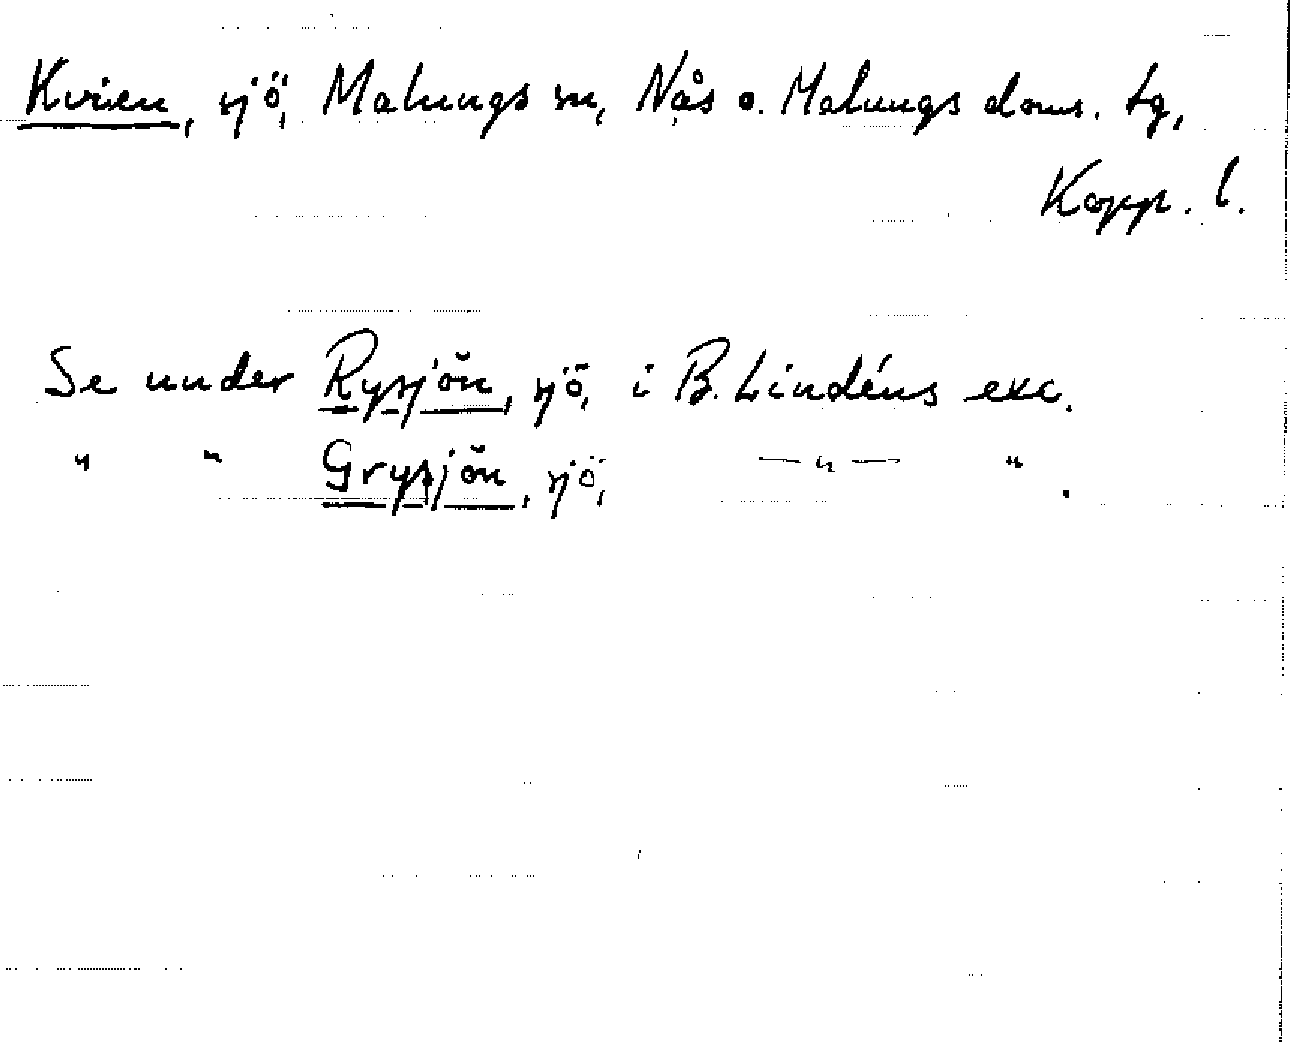 Kvien, sjö, Malungs sn, Nås o. Malungs doms. tg,
Kopp. l.
Se under Rysjön, sjö, i B. Lindéns exc.
" " Grysjön, sjö, — " — " .